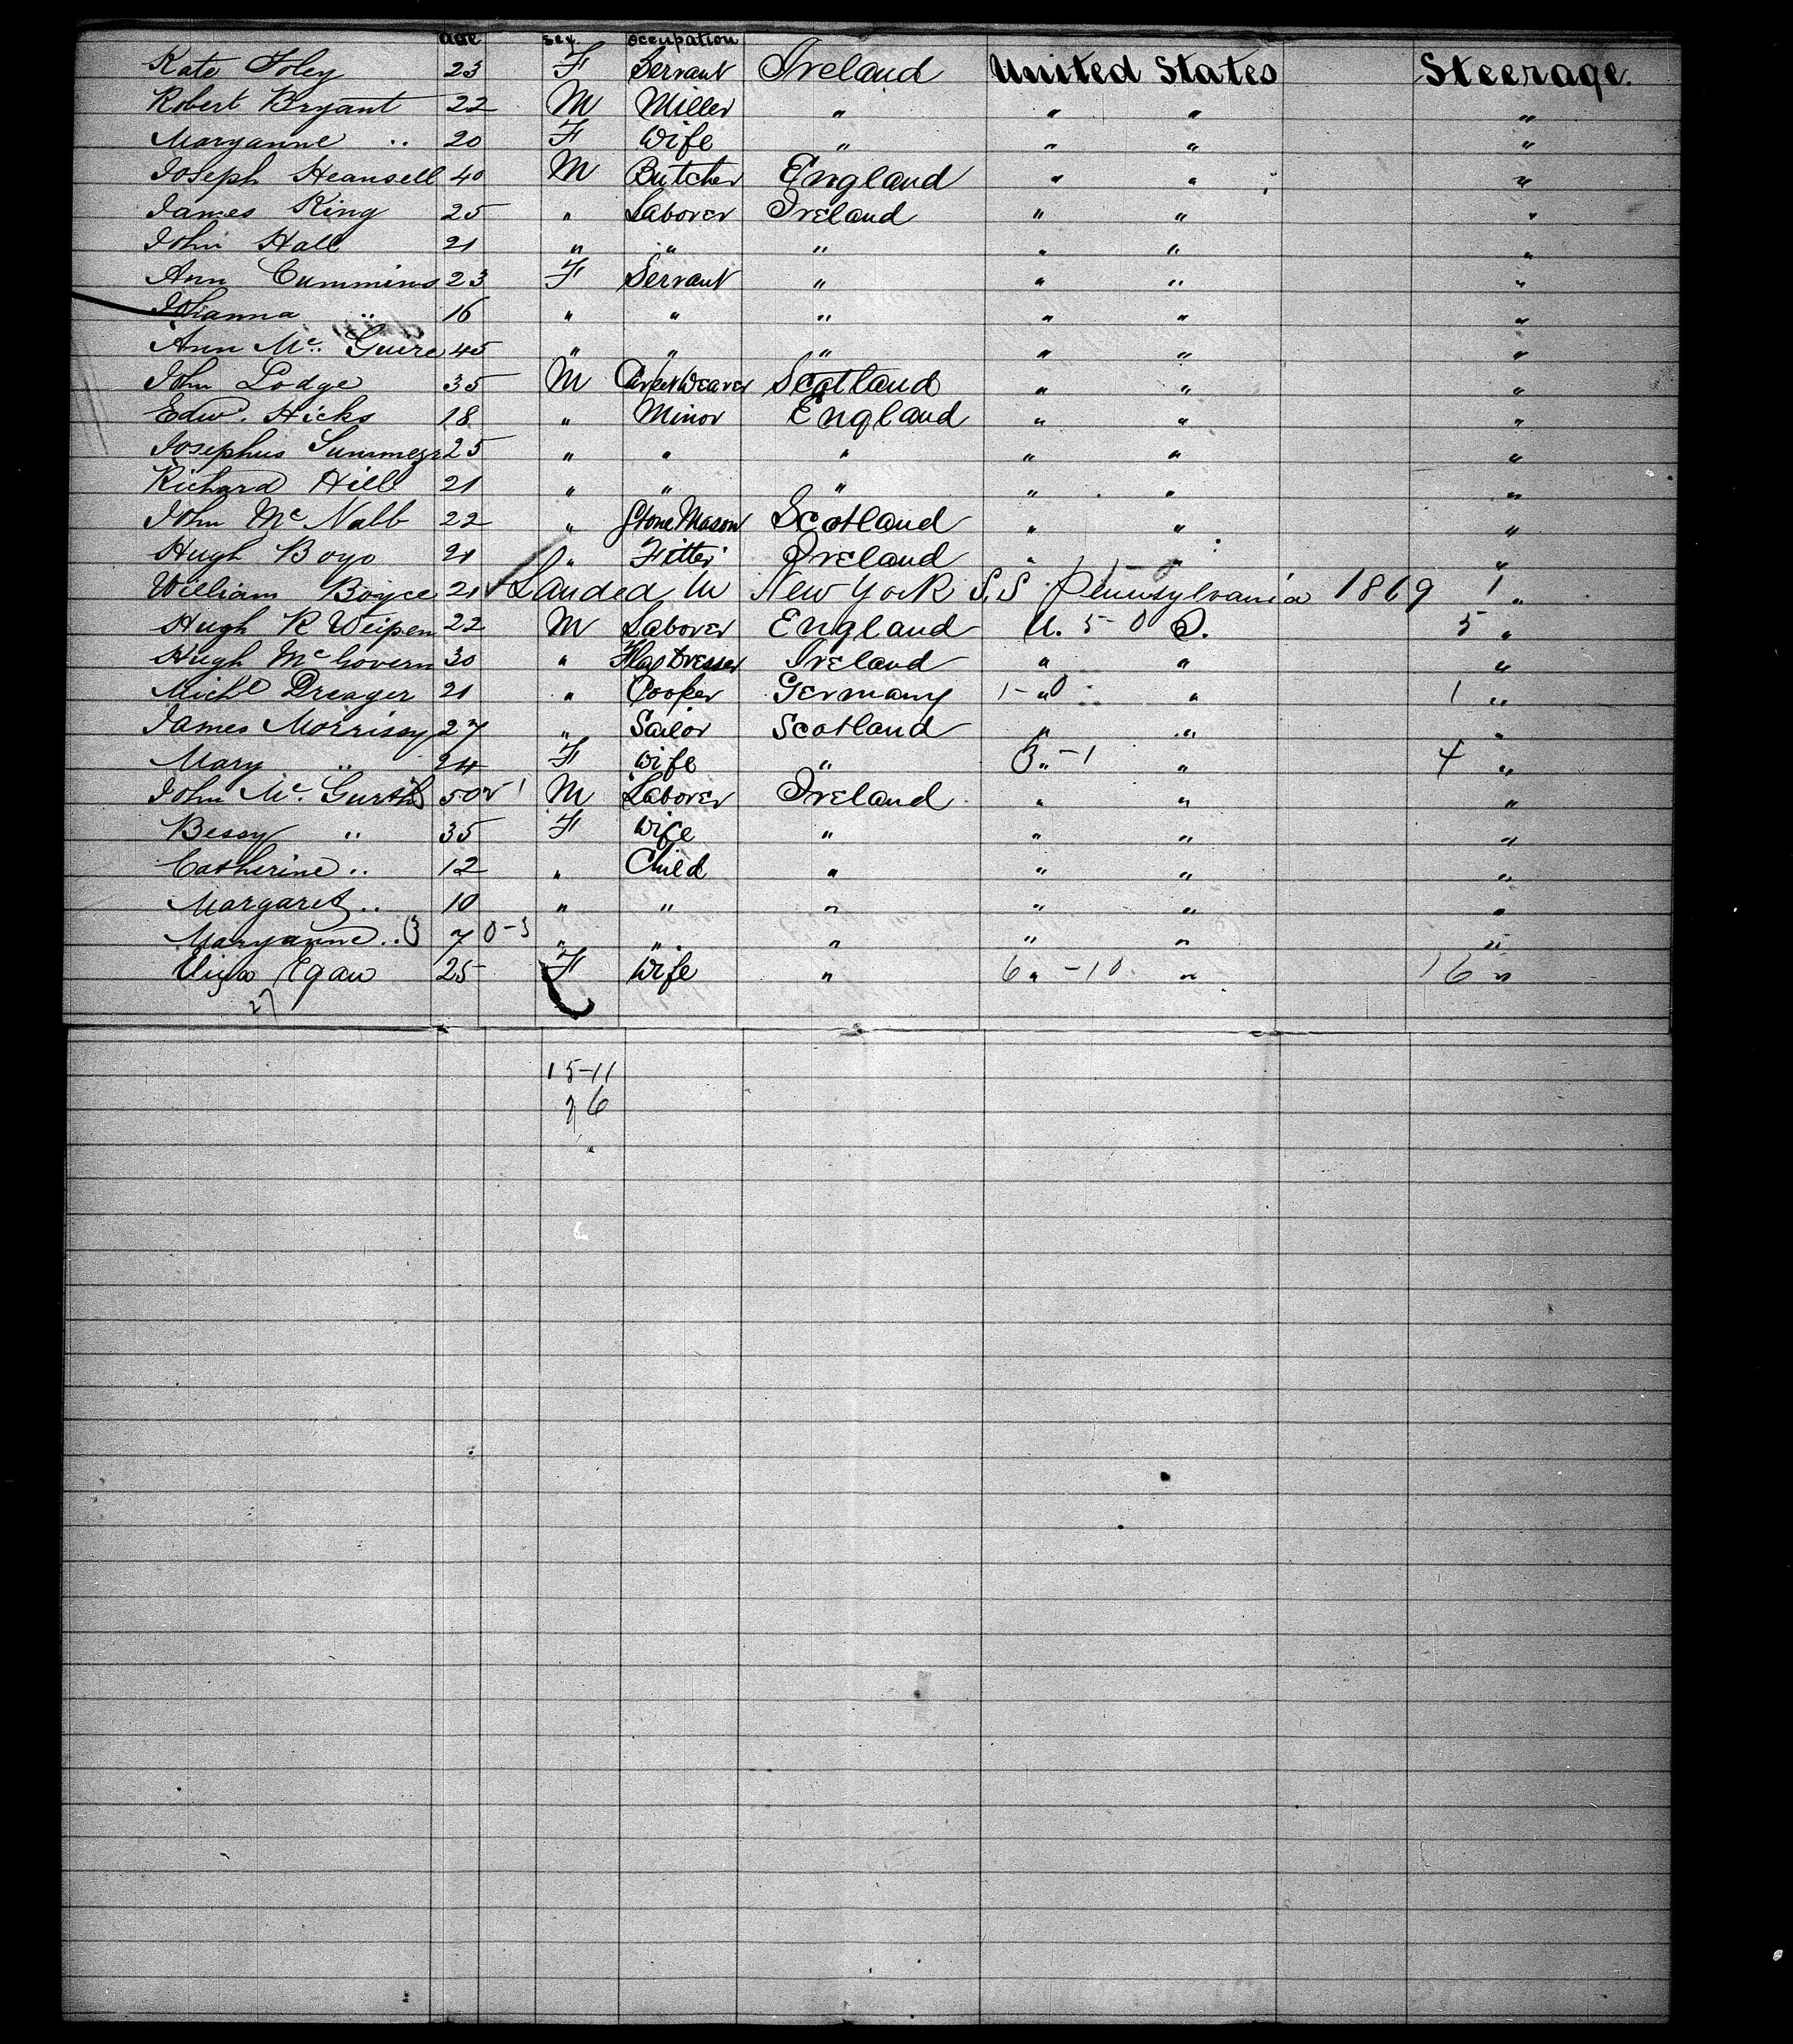 age sex occupation
Kate Foley 23 F Servant Ireland United States Steerage.
Robert Bryant 22 M Miller " " " "
Maryanne " 20 F Wife " " " "
Joseph Heansell 40 M Butcher England " " "
James King 25 " Laborer Ireland " " "
John Hall 21 " " " " " "
Ann Cummins 23 F Servant " " " "
Johanna " 16 " " " " " "
Ann Mc Guire 45 " " " " " "
John Lodge 35 M Carpet Weaver Scotland " " "
Edw. Hicks 18 " Minor England " " "
Josephus 25 " " " " " "
Richard Hill 21 " " " " " "
John Mc Nabb 22 " Stone Mason Scotland " " "
Hugh Boyo 21 " Fitter Ireland " " "
William Boyce 21 Landed in New York S.S Pennsylvania 1869 1 "
Hugh R Weipen 22 M Laborer England U. 5-0 S. 5 "
Hugh Mc Govern 30 " Flax Dresser Ireland " " "
Michl Dreager 21 " Cooper Germany 1-0 " " 1 "
James Morrissy 27 " Sailor Scotland " " "
Mary " 24 F Wife " 3-1 " " 4 "
John Mc 50 M Laborer Ireland " " "
Bessy " 35 F Wife " " " "
Catherine " 12 " Child " " " "
Margaret " 10 " " " " " "
Maryanne " 3 7 0-3 " " " " " "
Eliza Egan 25 F Wife " 6 " -10 " 16 "
27
15-11
26